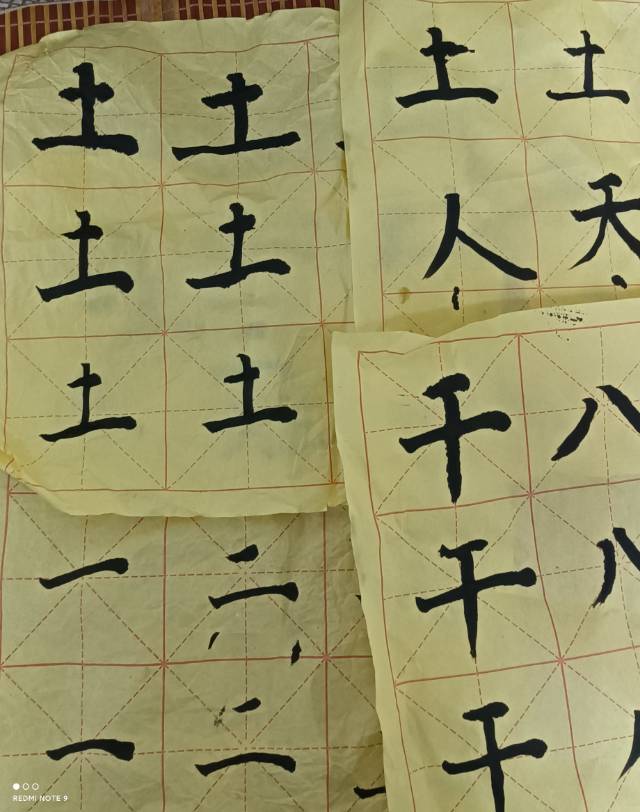 土 土
土 土
土 土
土 土
人 天
干 八
干 八
干
一 二
一 二
REDMI NOTE 9